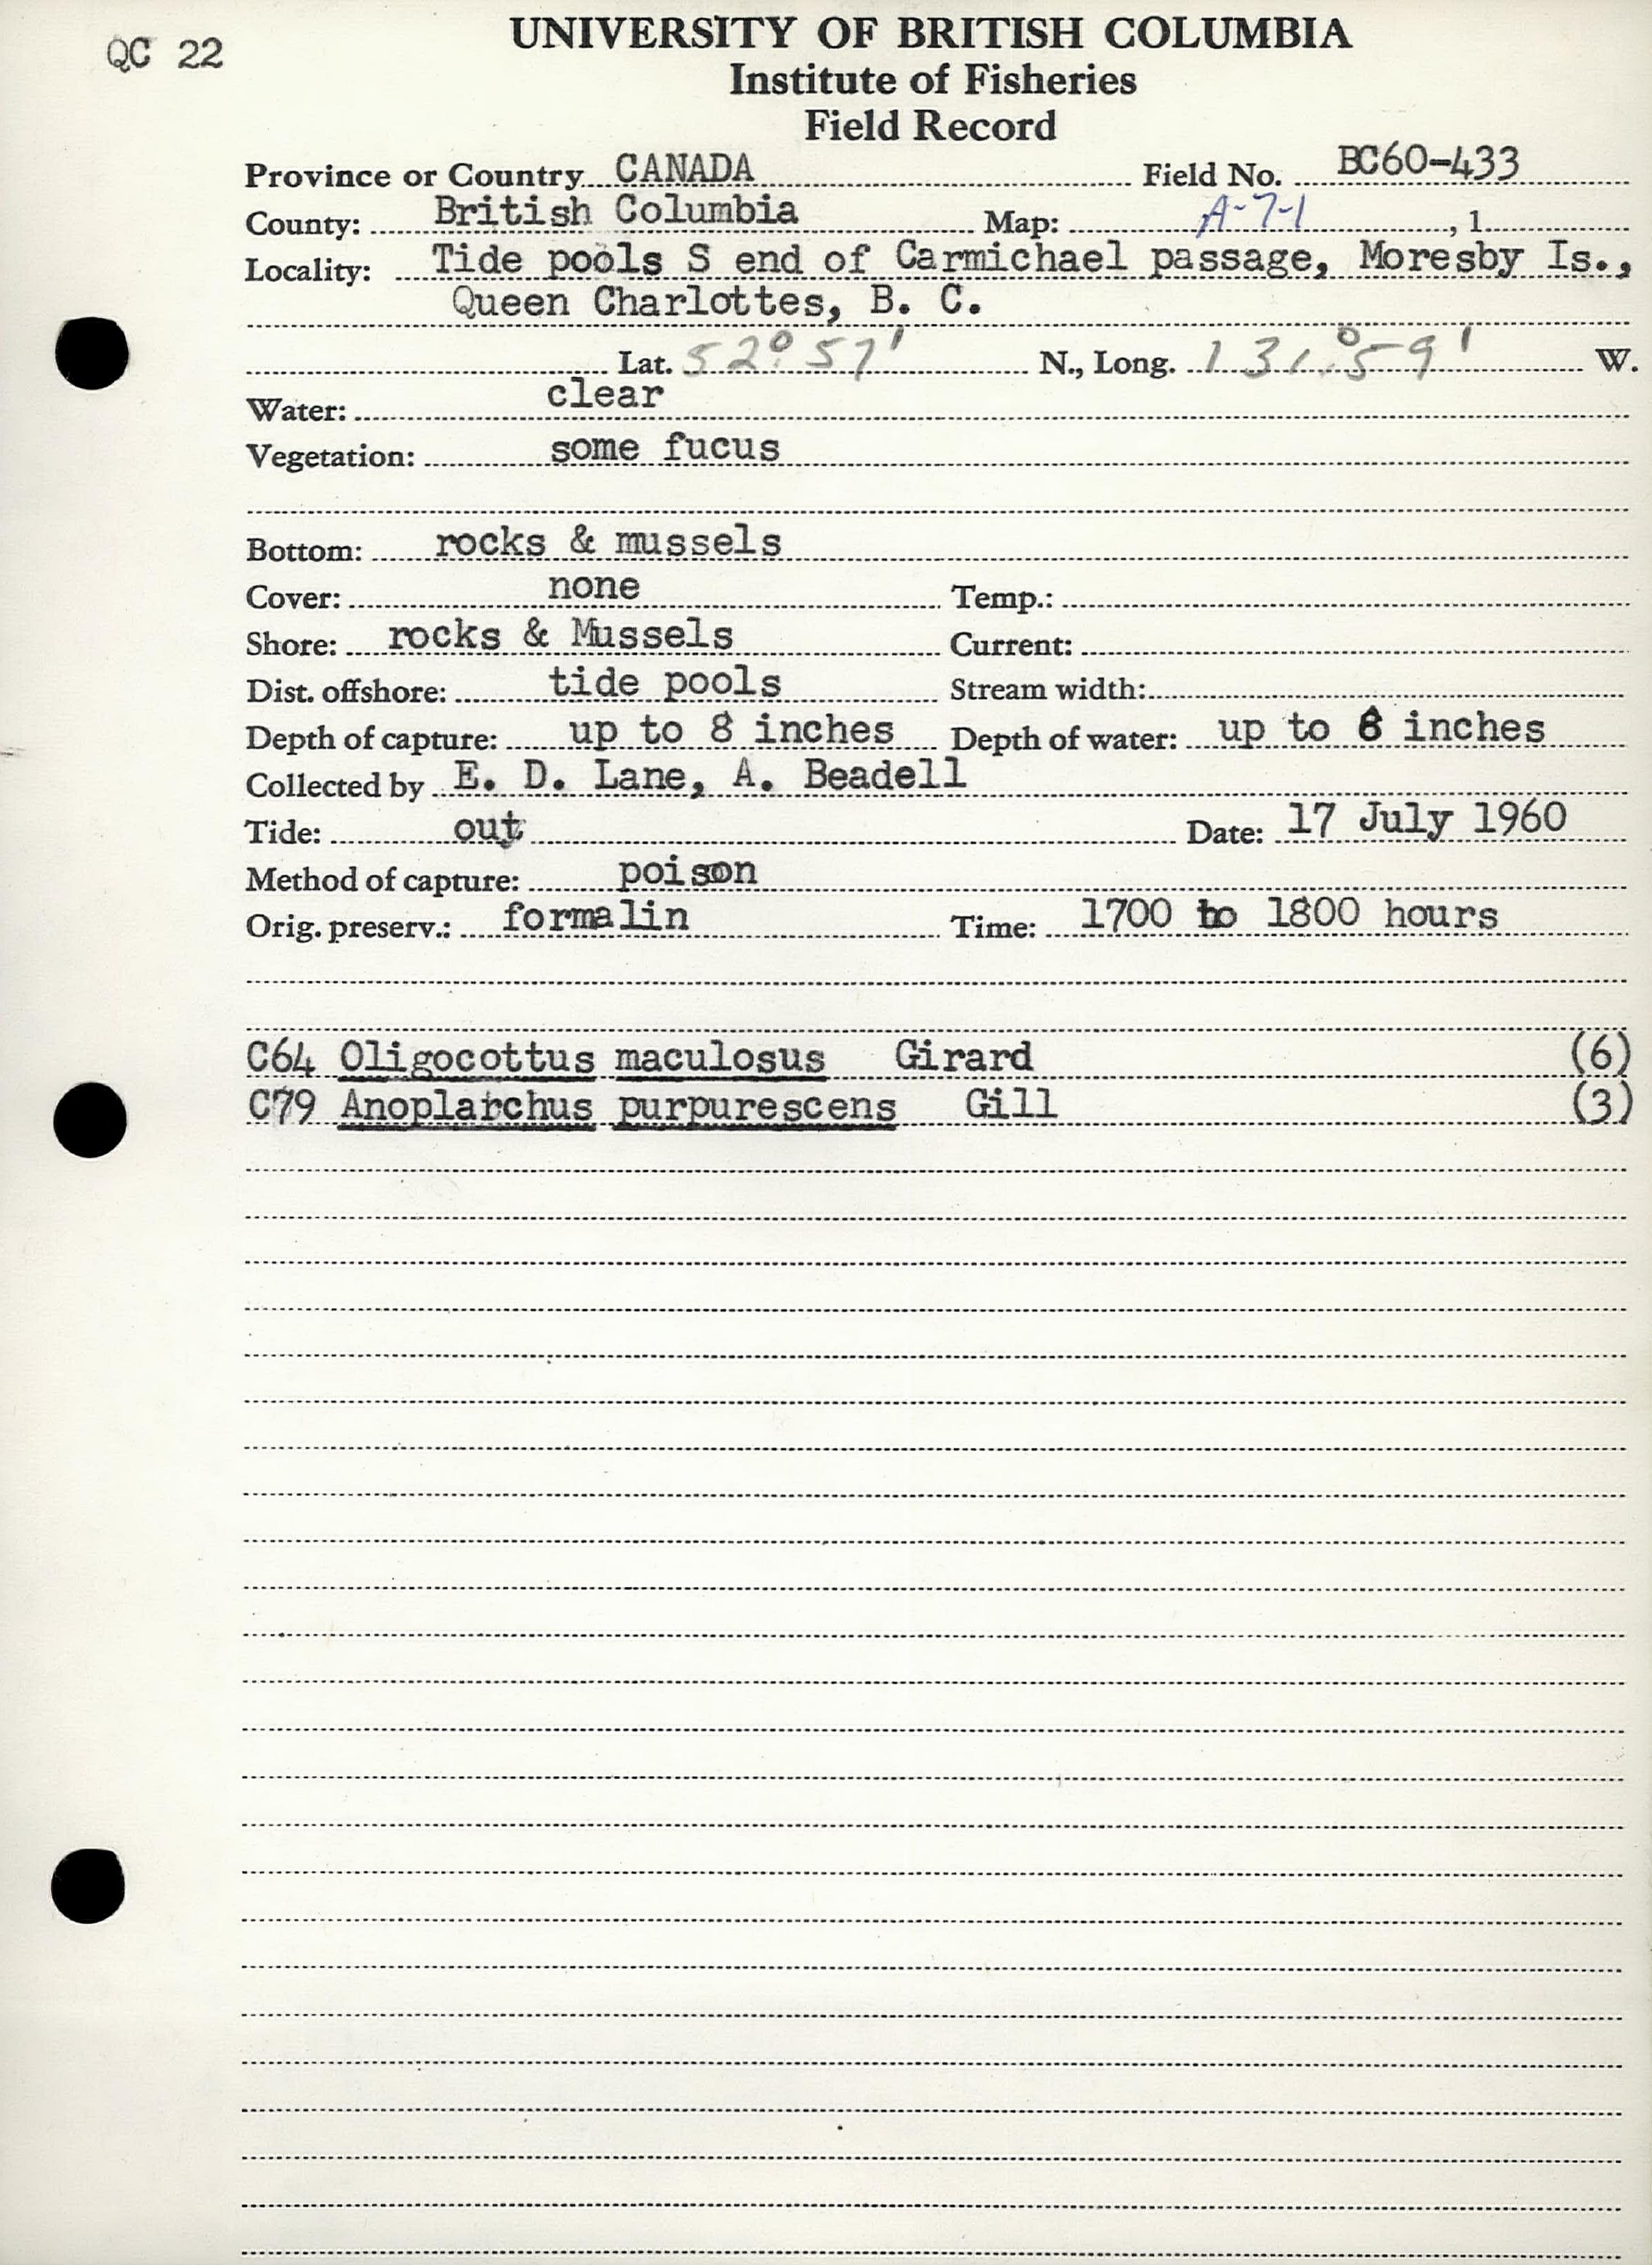 QC 22
UNIVERSITY OF BRITISH COLUMBIA
Institute of Fisheries
Field Record
Province or Country CANADA Field No. BC60-433
County: British Columbia Map: A-7-1, 1
Locality: Tide pools S end of Carmichael passage, Moresby Is.,
Queen Charlottes, B. C.
Lat. 52° 57' N., Long. 131° 59' W.
Water: clear
Vegetation: some fucus
Bottom: rocks & mussels
Cover: none Temp.:
Shore: rocks & Mussels Current:
Dist. offshore: tide pools Stream width:
Depth of capture: up to 8 inches Depth of water: up to 8 inches
Collected by E. D. Lane, A. Beadell
Tide: out Date: 17 July 1960
Method of capture: poison
Orig. preserv.: formalin Time: 1700 to 1800 hours
C64 Oligocottus maculosus Girard (6)
C79 Anoplarchus purpurescens Gill (3)